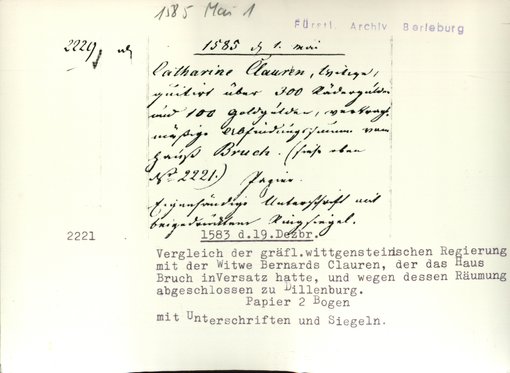 1585 Mai 1
Fürstl. Archiv Berleburg
2229
1585 d 1. mai
Catharine Clauren, Witwe,
quitirt über 300 Rädergulden
und 100 Goldgulden, vertrags-
mäßige Abfindungssumme vom
Hauß Bruch. (siehe oben
No 2221.) Papier.
Eigenhändige Unterschrift mit
beigedrucktem Ringsiegel.
2221
1583 d.19.Dezbr.
Vergleich der gräfl.wittgensteinischen Regierung
mit der Witwe Bernards Clauren, der das Haus
Bruch inVersatz hatte, und wegen dessen Räumung
abgeschlossen zu Dillenburg.
Papier 2 Bogen
mit Unterschriften und Siegeln.